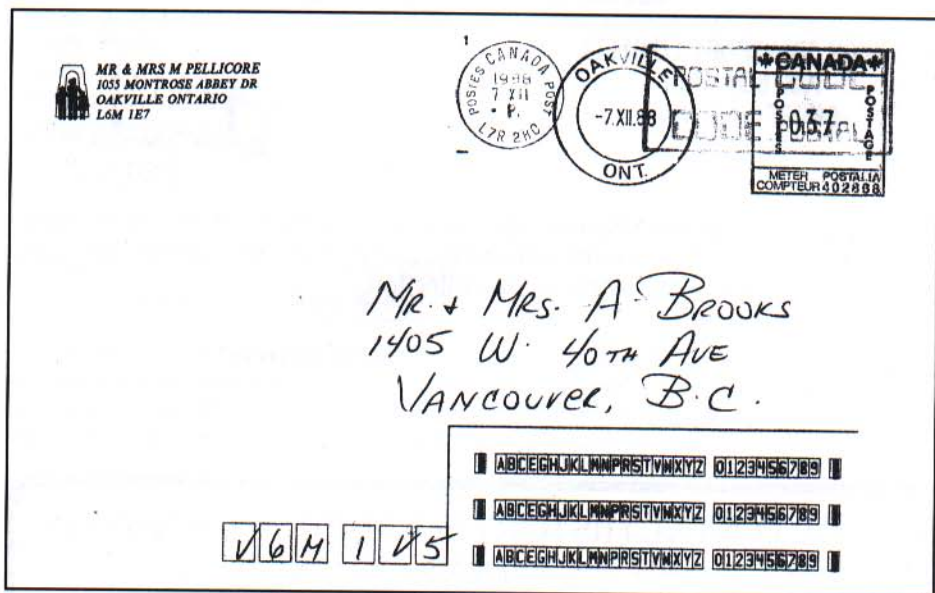 MR & MRS M PELLICORE
1055 MONTROSE ABBEY DR
OAKVILLE ONTARIO
L6M 1E7
1
POSTES CANADA POST
1988
7 XII
- P.
L7R 2K0
OAKVILLE
-7.XII.88
ONT.
POSTAL CODE
CODE POSTAL
CANADA
POSTES
037
POSTAGE
METER POSTALIA
COMPTEUR 402868
MR. & MRS. A. BROOKS
1405 W. 40TH AVE
VANCOUVER, B.C.
ABCEGHJKLMNPRSTVWXYZ 0123456789
ABCEGHJKLMNPRSTVWXYZ 0123456789
ABCEGHJKLMNPRSTVWXYZ 0123456789
V6M 1V5